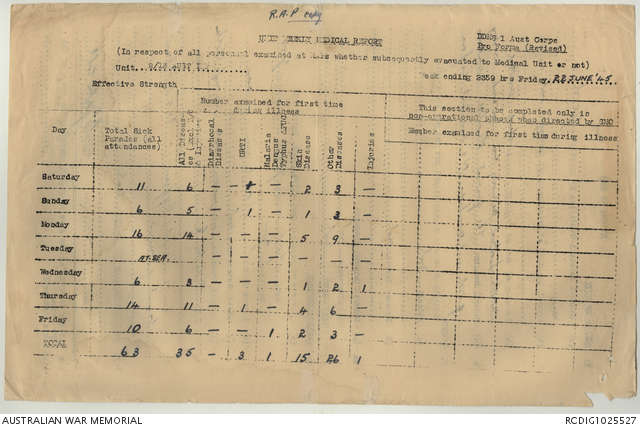 R.A.P copy
UNIT WEEKLY MEDICAL REPORT
DDMS 1 Aust Corps
Pro Forma (Revised)
(In respect of all personnel examined at RAPs whether subsequently evacuated to Medical Unit or not)
Unit
Week ending 2359 hrs Friday 22 JUNE '45
Effective Strength
Number examined for first time during illness
This section to be completed only in non-operational phases when directed by
Number examined for first time during illness
Day
Total Sick Parades (all attendances)
All Diseases
Diarrhoeal Diseases
URTI
Malaria Dengue Typhus
Skin Diseases
Other Diseases
Injuries
Saturday 11 6 — — 2 3 —
Sunday 6 5 — 1 — 1 3 —
Monday 16 14 — — — 5 9 —
Tuesday AT SEA — — — — — —
Wednesday 6 3 — — — 1 2 1
Thursday 14 11 — 1 — 4 6 —
Friday 10 6 — — 1 2 3 —
TOTAL 63 35 — 3 1 15 26 1
AUSTRALIAN WAR MEMORIAL
RCDIG1025527